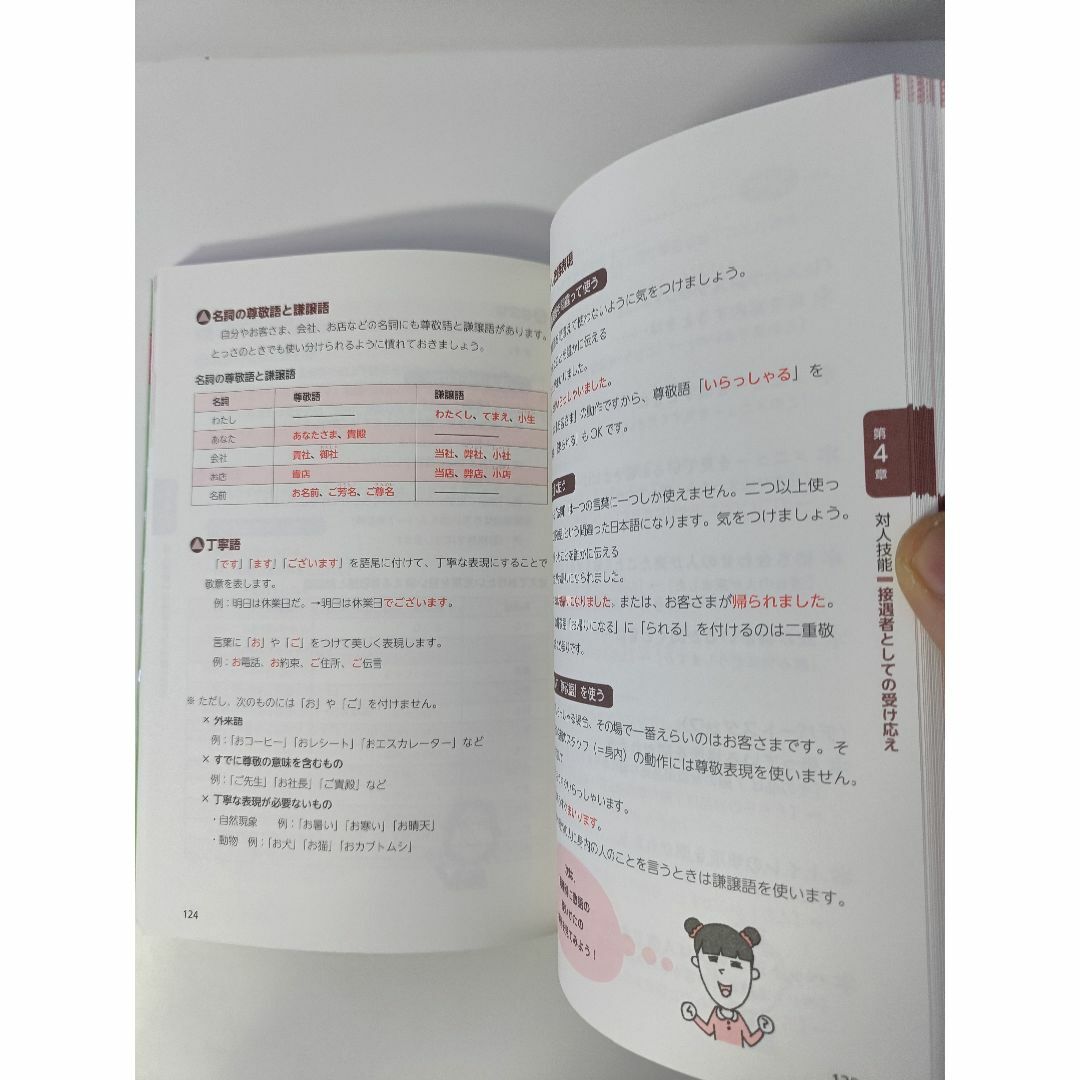 名詞の尊敬語と謙譲語
自分やお客さま、会社、お店などの名詞にも尊敬語と謙譲語があります。
とっさのときでも使い分けられるように慣れておきましょう。
名詞の尊敬語と謙譲語
名詞 尊敬語 謙譲語
わたし ―――― わたくし、てまえ、小生
あなた あなたさま、貴殿 ――――
会社 貴社、御社 当社、弊社、小社
お店 貴店 当店、弊店、小店
名前 お名前、ご芳名、ご尊名 ――――
丁寧語
「です」「ます」「ございます」を語尾に付けて、丁寧な表現にすることで
敬意を表します。
例：明日は休業日だ。→明日は休業日でございます。
言葉に「お」や「ご」をつけて美しく表現します。
例：お電話、お約束、ご住所、ご伝言
※ ただし、次のものには「お」や「ご」を付けません。
× 外来語
例：「おコーヒー」「おレシート」「おエスカレーター」など
× すでに尊敬の意味を含むもの
例：「ご先生」「お社長」「ご貴殿」など
× 丁寧な表現が必要ないもの
・自然現象 例：「お暑い」「お寒い」「お晴天」
・動物 例：「お犬」「お猫」「おカブトムシ」
124
表現
って使う
ように気をつけましょう。
に伝える
ました。
ました。
の動作ですから、尊敬語「いらっしゃる」を
もOKです。
一つの言葉に一つしか使えません。二つ以上使っ
という間違った日本語になります。気をつけましょう。
に伝える
になられました。
になりました。または、お客さまが帰られました。
になる」に「られる」を付けるのは二重敬
です。
を使う
場合、その場で一番えらいのはお客さまです。そ
スタッフ（＝身内）の動作には尊敬表現を使いません。
いらっしゃいます。
まいります。
に身内の人のことを言うときは謙譲語を使います。
みよう！
第4章
対人技能 接遇者としての受け応え